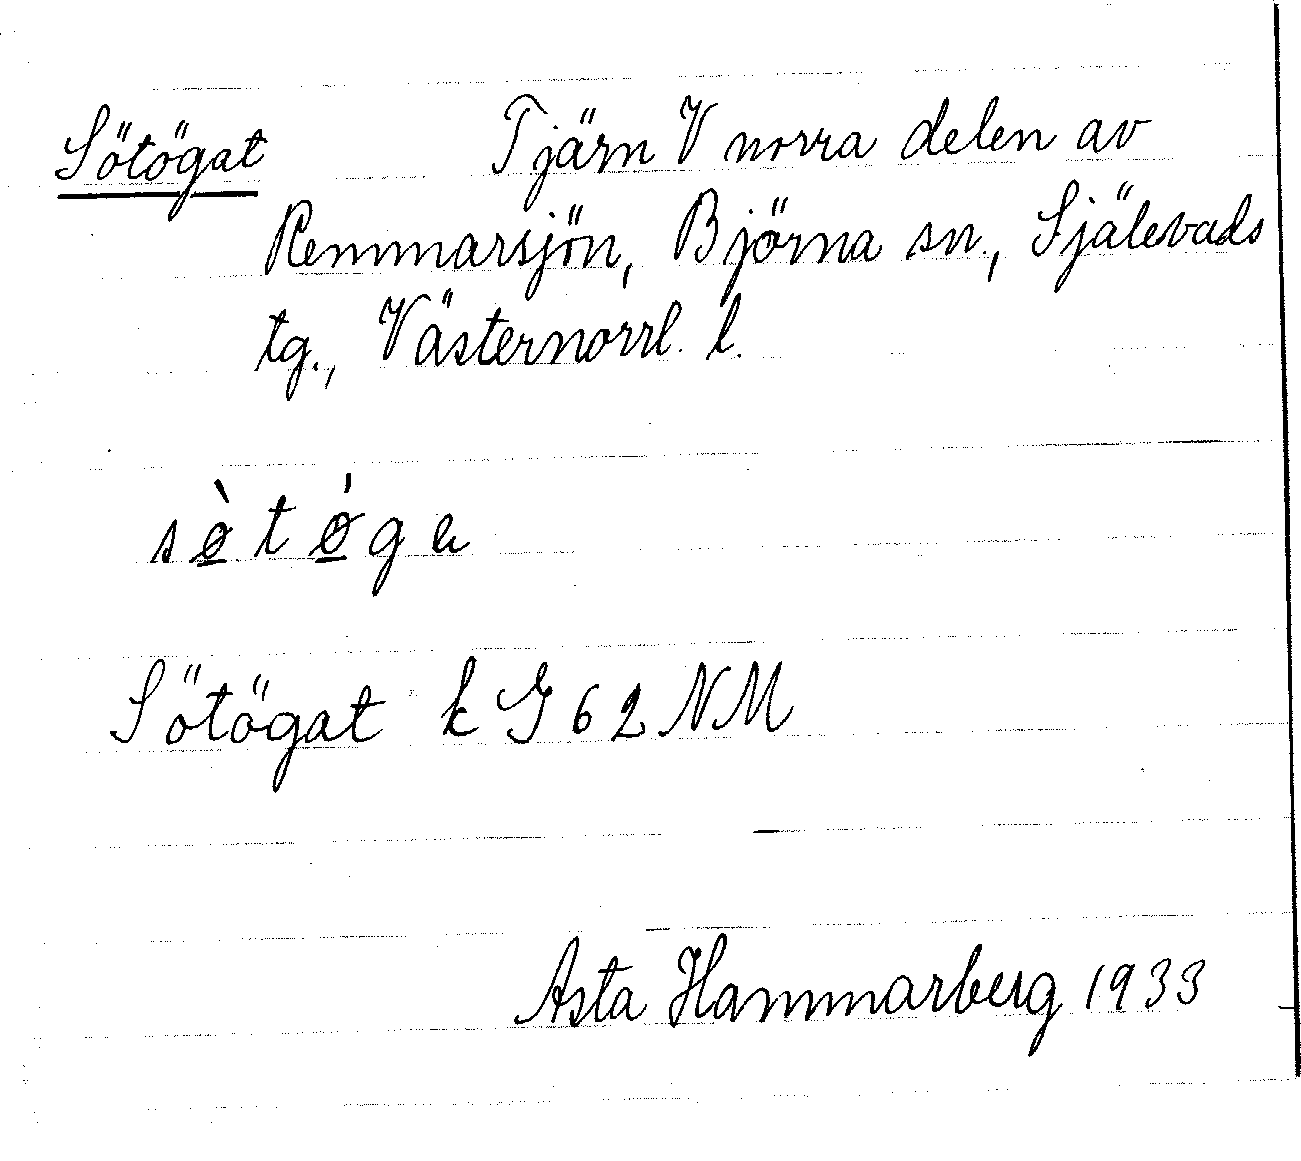 Sötögat Tjärn V norra delen av
Remmarsjön, Björna sn., Själevads
tg., Västernorrl. l.
sø̀tǿga
Sötögat k G 62 NM
Asta Hammarberg 1933